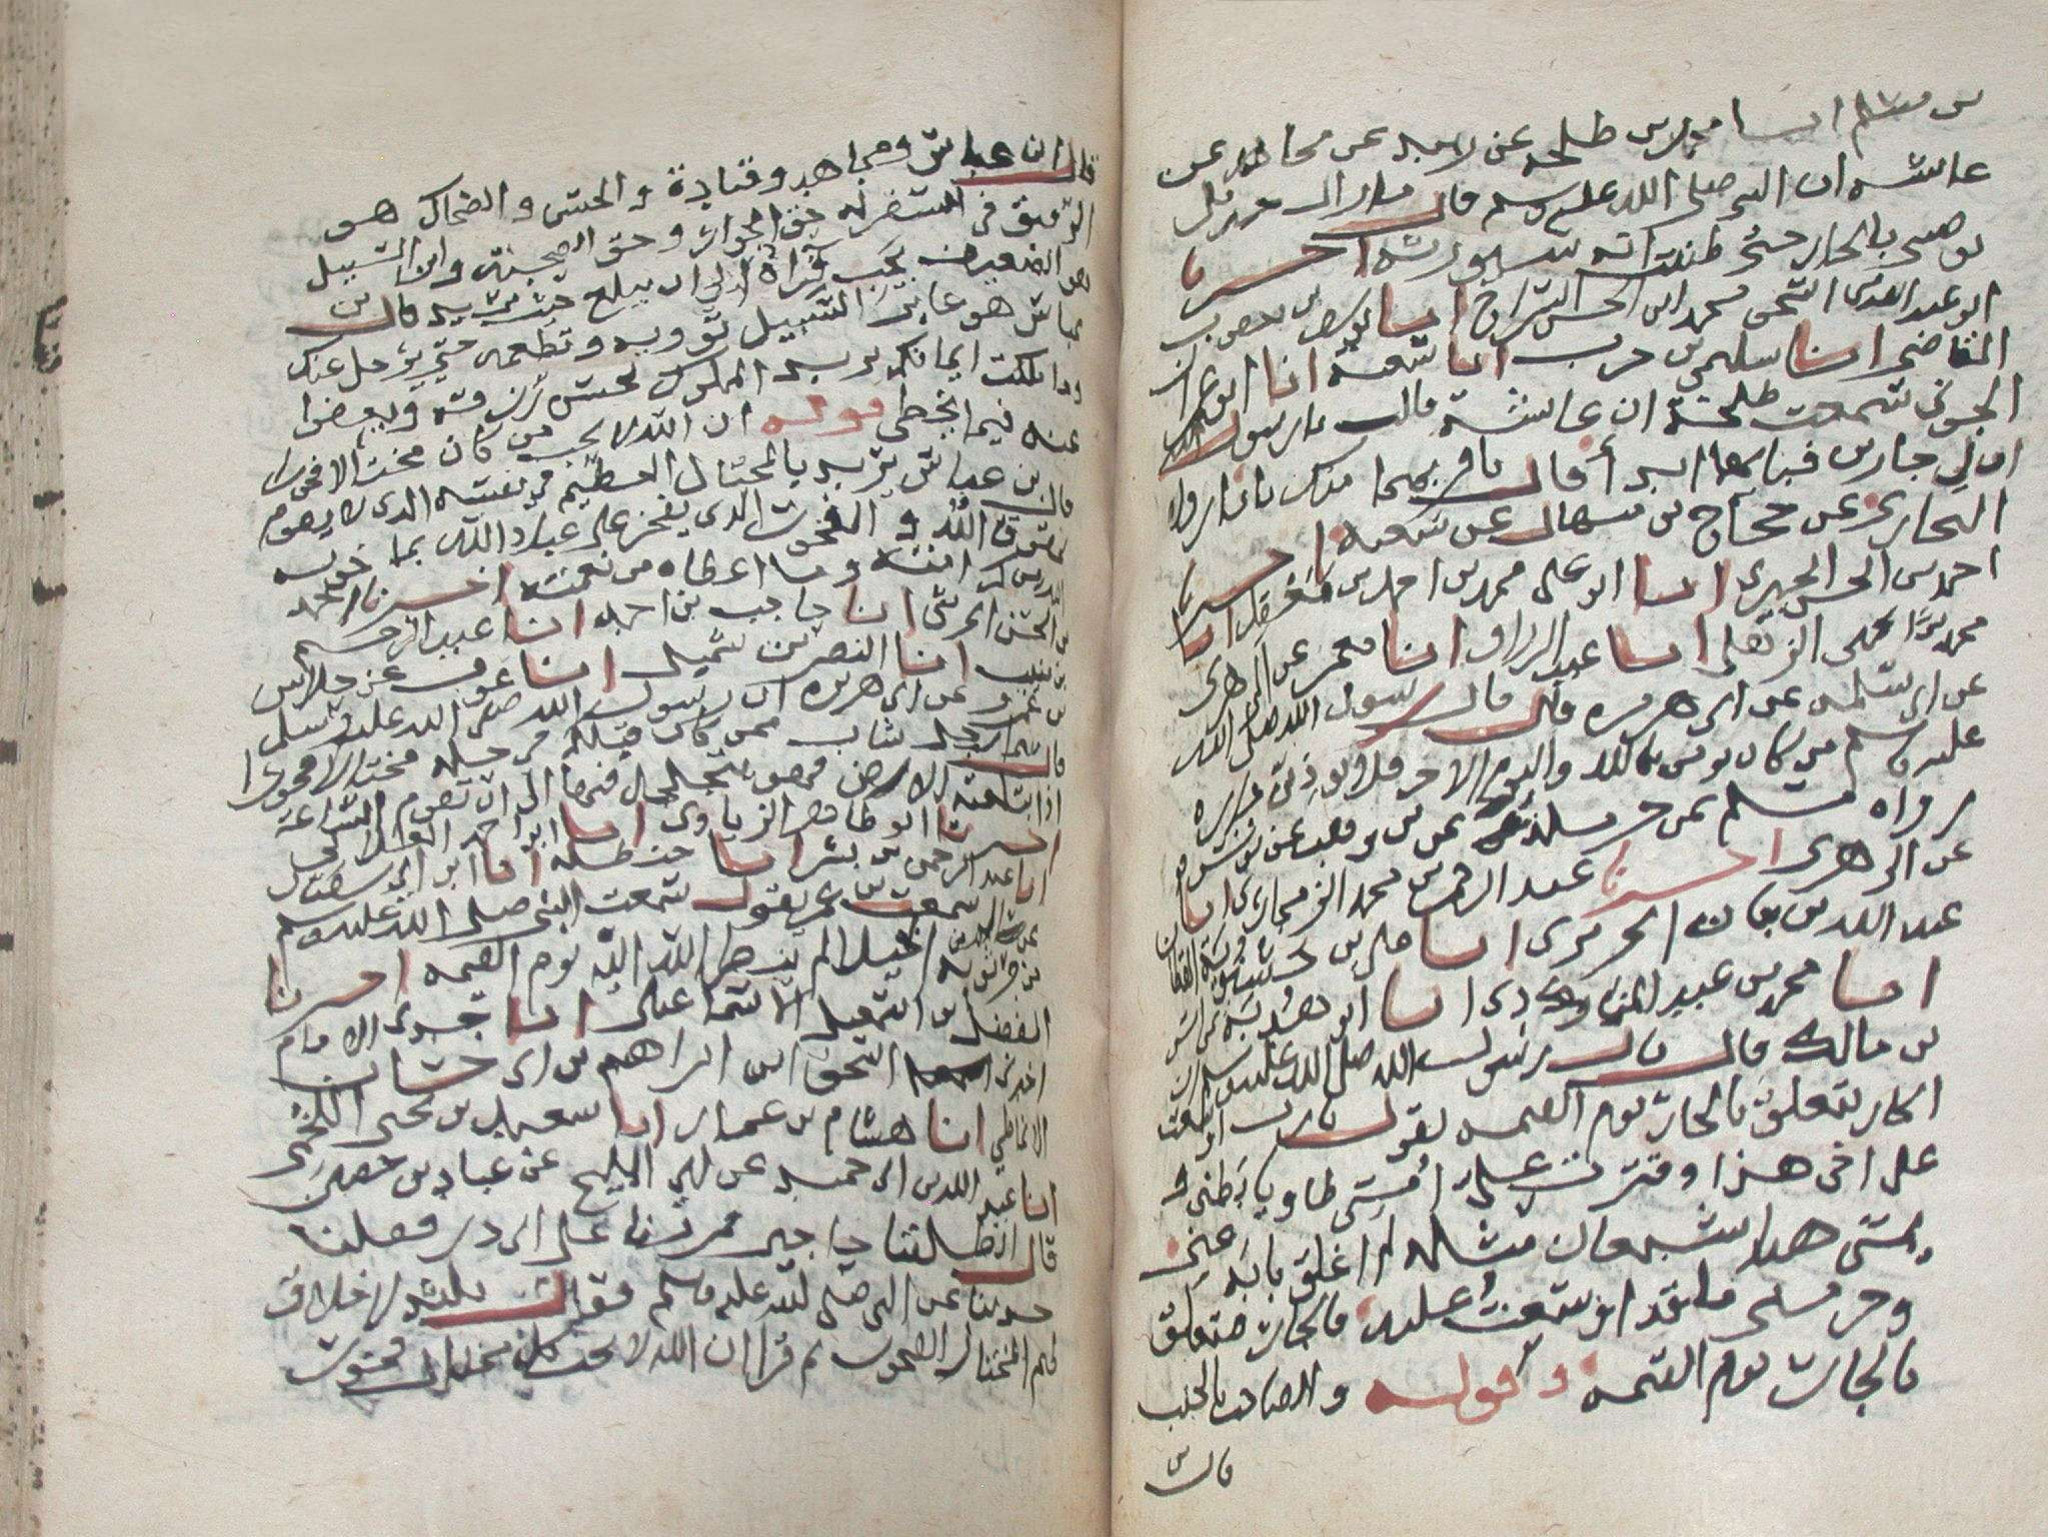 بن مسلم انا محمد بن طلحه عن زبيد عن مجاهد عن
عائشه ان النبي صلى الله عليه وسلم قال مازال جبريل
يوصيني بالجار حتى ظننت انه سيورثه اخبرنا
ابو عبد الله محمد ابن الحسن السراج انا يوسف بن يعقوب
القاضي انا سليمن بن حرب انا شعبة انا ابو عمران
الجوني سمعت طلحة ان عائشة قالت يارسول الله
ان لي جارين فبايهما ابدأ قال باقربهما منك بابا رواه
البخاري عن حجاج بن منهال عن شعبه اخبرنا
احمد بن الحسن الحيري انا ابو على محمد بن احمد بن معقل انا
محمد بن يحيى الذهلي انا عبد الرزاق انا معمر عن الزهري
عن ابي سلمه عن ابي هريره قال قال رسول الله صلى الله
عليه وسلم من كان يومن بالله واليوم الاخر فلا يوذي جاره
رواه مسلم عن حرمله عن بن وهب عن يونس
عن الزهري اخبرنا عبد الرحمن بن محمد الزمجاري انا
عبد الله بن الجرمري انا علي بن القطان
انا محمد بن عبيد الله انا ابو هدبة عن انس
بن مالك قال قال رسول الله صلى الله عليه وسلم ان
الجار يتعلق بالجار يوم القيمه يقول يارب اوسعت
على اخي هذا وقترت علي امسي طاويا بطني و
يمسي هذا شبعان سله لم اغلق بابه عني
وحرمني ما قد اوسعت عليه فالجار متعلق
بالجار يوم القيمه وقوله والصاحب بالجنب
قال
قال ابن عباس ومجاهد وقتادة والحسن والضحاك هو
الرفيق في السفر له حق الجوار وحق الصحبة وابن السبيل
هو الضعيف يجب قراه الى ان يبلغ حيث يريد قال بن
عباس هو عابر السبيل تؤويه وتطعمه حتى يرحل عنك
وما ملكت ايمانكم يريد المملوك تحسن رزقه وتعفوا
عنه فيما يخطي قوله ان الله لا يحب من كان مختالا فخورا
قال بن عباس يريد بالمختال العظيم في نفسه الذي لا يقوم
بحقوق الله والفخور الذي يفخر على عباد الله بما خوله
الله من كرامته وما اعطاه من نعمته اخبرنا احمد
بن الحسن الحرشي انا حاجب بن احمد انا عبد الرحيم
بن منيب انا النضر بن شميل انا عوف عن خلاس
بن عمرو عن ابي هريره ان رسول الله صلى الله عليه وسلم
قال بينما رجل شاب ممن كان قبلكم في حله مختالا فخورا
اذا ابتلعته الارض فهو يتجلجل فيها الى ان تقوم الساعة
اخبرنا ابو طاهر الزيادي انا ابو احمد
انا عبد الرحمن بن بشر انا حنظله انا ابن ابي سفيان
سمعت بن عمر يقول سمعت النبي صلى الله عليه وسلم
من جر ثوبه من الخيلا لم ينظر الله اليه يوم القيمه اخبرنا
الفضل بن اسمعيل الاسماعيلي انا جدي الامام
اخبرني اسحق ابن ابراهيم بن ابي حسان
الانماطي انا هشام بن عمار انا سعيد بن يحيى اللخمي
انا عبيد الله بن ابي حميد عن ابي المليح عن عباد بن
قال انطلقنا حاجين فمررنا على ابي ذر فقلنا
حدثنا عن النبي صلى الله عليه وسلم فقال
المختال الفخور ثم قرا ان الله لا يحب كل مختال فخور